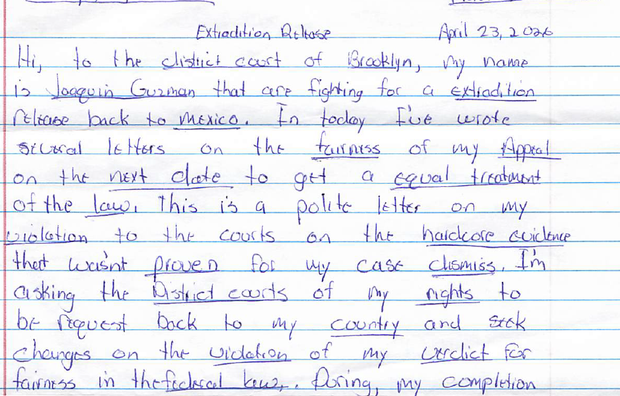 Extradition Release April 23, 2026
Hi, to the district court of Brooklyn, my name
is Joaquin Guzman that are fighting for a extradition
release back to mexico. In today I've wrote
several letters on the fairness of my Appeal
on the next date to get a equal treatment
of the law. This is a polite letter on my
violation to the courts on the hardcore evidence
that wasn't proven for my case dismiss. I'm
asking the District courts of my rights to
be request back to my country and seek
changes on the violation of my verdict for
fairness in the federal law. During, my completion